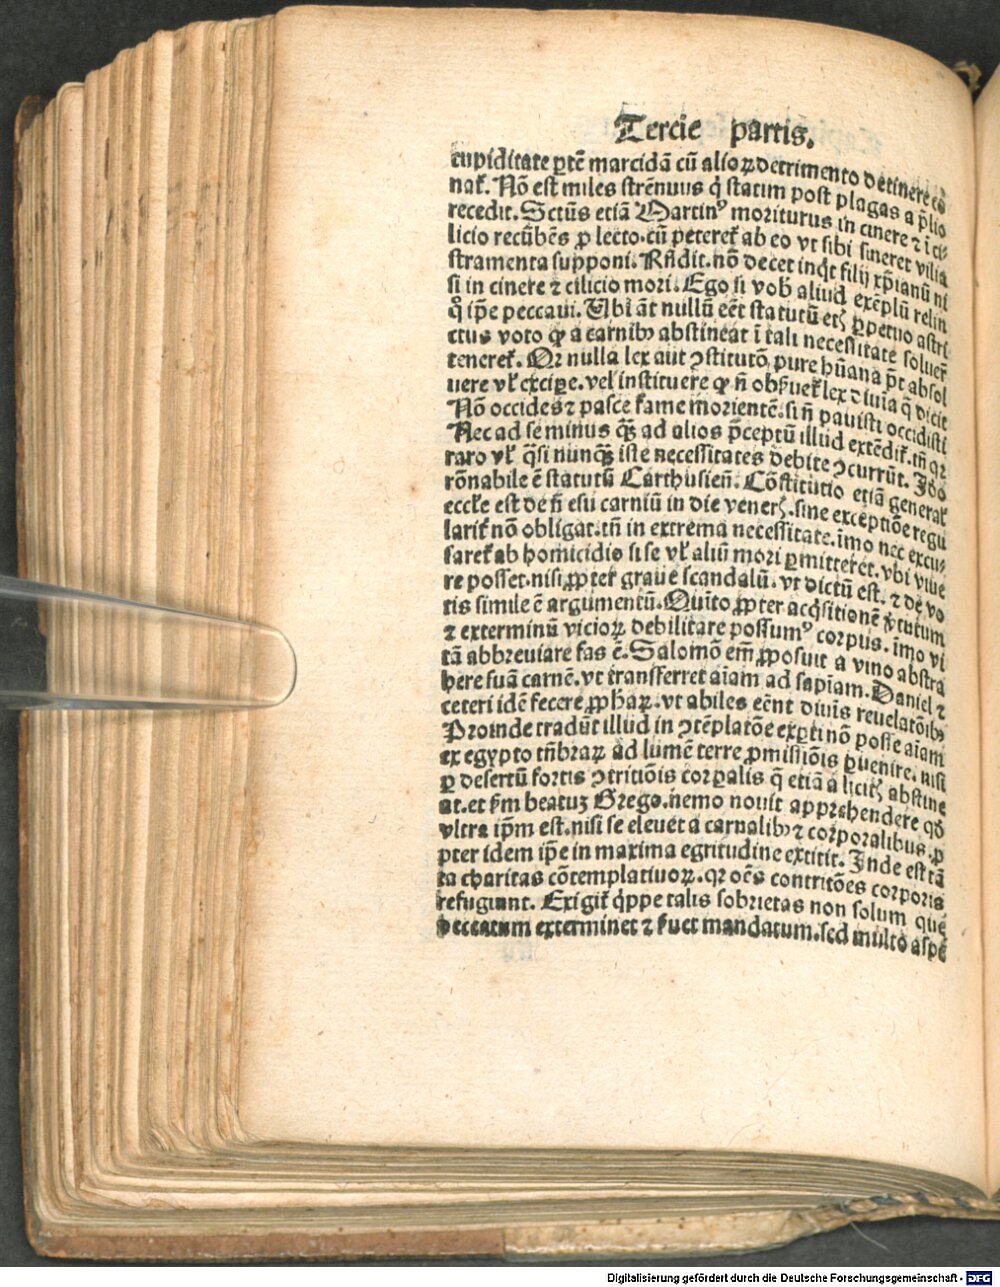 Tercie partis.
cupiditate ꝑtē marcidā cū alioꝝ detrimento detinere cō
nat̄. Nō est miles strēnuus q̇ statim post plagas a p̄lio
recedit. Sctūs etiā Martinꝰ moriturus in cinere ⁊ ī ci⸗
licio recūbēs ꝓ lecto. cū peteret̄ ab eo vt sibi sineret vilia
stramenta supponi. Rn̄dit. nō decet inq̇t filij xp̄ianū ni
si in cinere ⁊ cilicio mori. Ego si vob̄ aliud exēplū relin
q̊ ip̄e peccaui. Vbi āt nullū eēt statutū etꝫ ꝑpetuo astri
ctus voto ꝙ a carnibꝫ abstineat ī tali necessitate soluer̄
teneret̄. Qꝛ nulla lex aut ꝯstitutō pure hūana p̄t absol
uere vl̄ excipe. vel instituere ꝙ n̄ obẜuet̄ lex diuīa q̄ dicit
Nō occides ⁊ pasce fame morientē. si n̄ pauisti occidisti
Nec ad se minus qꝫ̄ ad alios p̄ceptū illud extēdit̄. tn̄ qꝛ
raro vl̄ q̄si nunqꝫ̄ iste necessitates debite ꝯcurrūt. Iō
rōnabile ē statutū Carthusien̄. Cōstitutio etiā general̄
eccl̄e est de n̄ esu carniū in die venerꝫ. sine exceptiōe regu
larit̄ nō obligat. tn̄ in extrema necessitate. īmo nec excu⸗
saret̄ ab homicidio si se vl̄ aliū mori ꝑmitteret. vbi viue
re posset. nisi ꝓpter graue scandalū. vt dictū est. ⁊ de vo
tis simile ē argumentū. Quīto ꝓpter acq̇sitionē v̄tutum
⁊ exterminū vicioꝝ debilitare possumꝰ corpus. īmo vi
tā abbreuiare fas ē. Salomō em̄ ꝓposuit a vino abstra
here suā carnē. vt transferret aīam ad sapīam. Daniel ⁊
ceteri idē fecere ꝓphaꝝ. vt abiles eēnt diuīs reuelatōibꝫ
Proinde tradūt illud in ꝯtēplatōe exꝑti nō posse aīam
ex egypto tn̄braꝝ ad lumē terre ꝓmissiōis ꝑuenire. nisi
ꝑ desertū fortis ꝯtritiōis corꝑalis q̄ etiā a licitꝫ abstine
at. et ẜm beatuꝫ Grego. nemo nouit apprehendere qd̄
vltra ip̄m est. nisi se eleuet a carnalibꝫ ⁊ corporalibus. ꝓ
pter idem ip̄e in maxima egritudine extitit. Inde est tā
ta charitas cōtemplatiuoꝝ. qꝛ oēs contritōes corporis
refugiunt. Exigit̄ q̇ppe talis sobrietas non solum que
peccatum exterminet ⁊ ẜuet mandatum. sed multo aspe
Digitalisierung gefördert durch die Deutsche Forschungsgemeinschaft - DFG